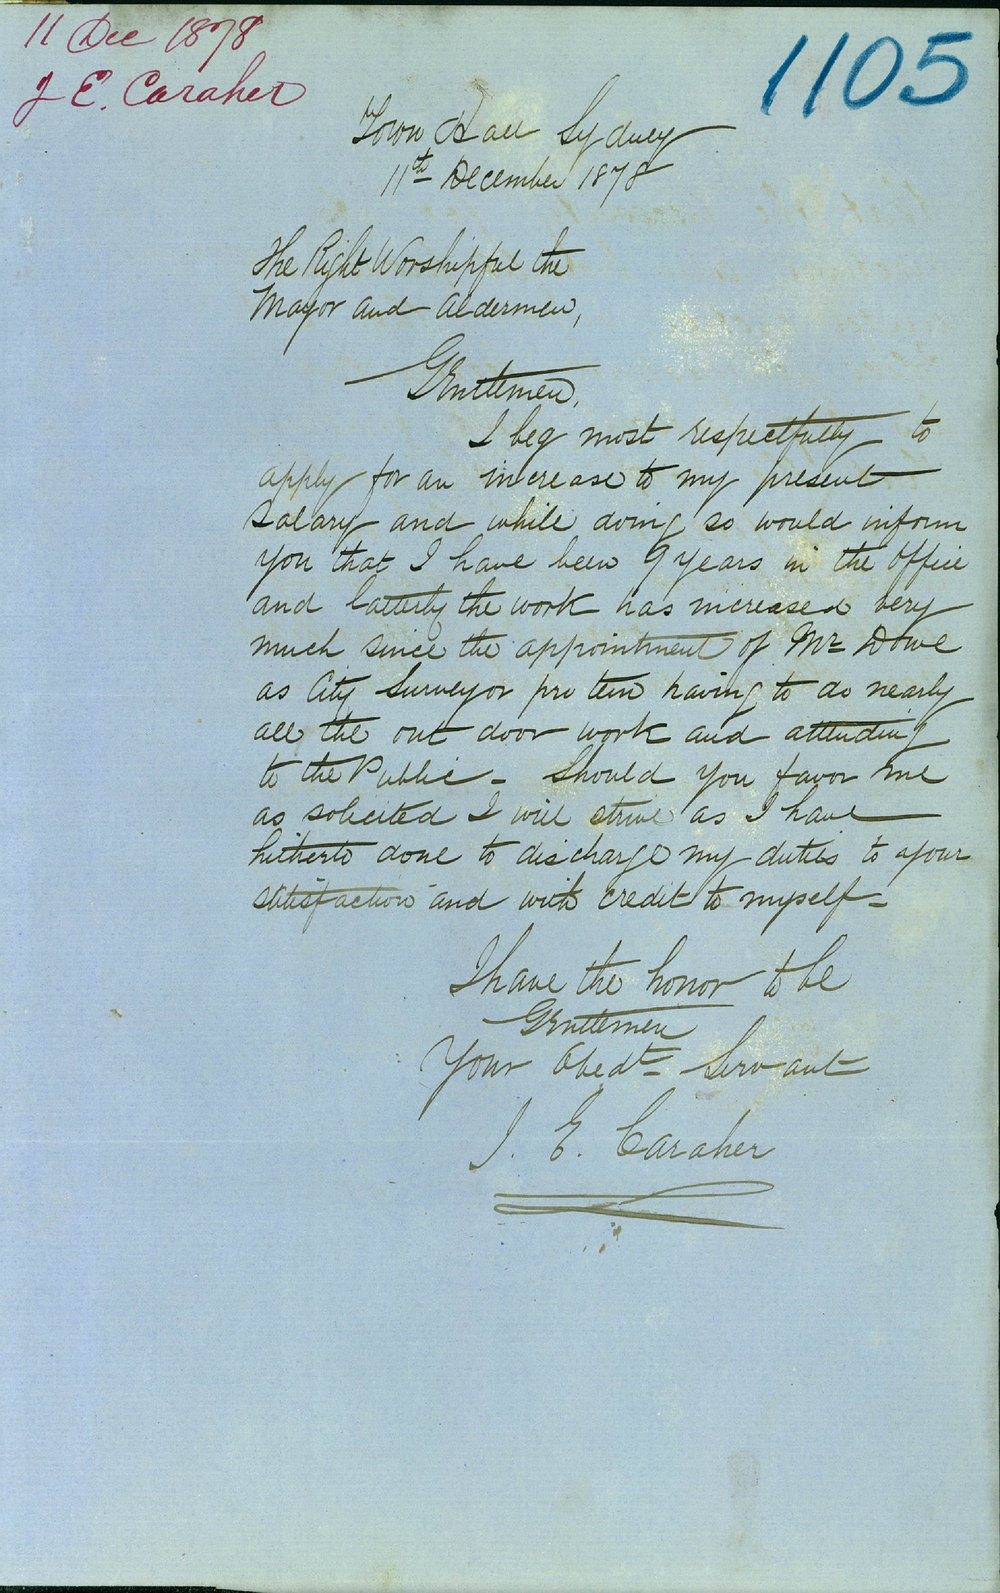 11 Dec 1878
J E. Caraher
1105
Town Hall Sydney
11th December 1878
The Right Worshipful the
Mayor and Aldermen,
Gentlemen,
I beg most respectfully to
apply for an increase to my present
salary and while doing so would inform
you that I have been 9 years in the office
and latterly the work has increased very
much since the appointment of Mr Dowe
as City Surveyor pro tem having to do nearly
all the out door work and attending
to the Public - Should you favor me
as solicited I will strive as I have
hitherto done to discharge my duties to your
satisfaction and with credit to myself -
I have the honor to be
Gentlemen
Your Obedt Servant
J. E. Caraher